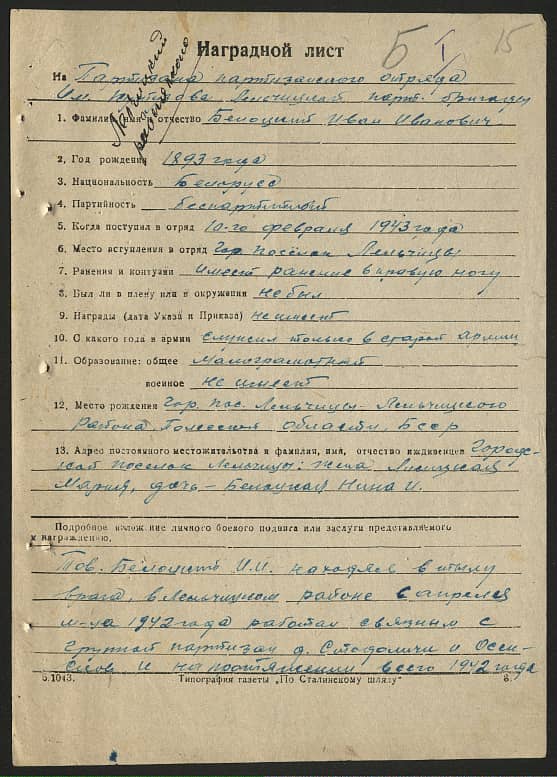 Б I 15
Наградной лист
На Партизана партизанского отряда
Им. Лельчицкой парт. бригады
1. Фамилия, имя, отчество Белоцкий Иван Иванович.
2. Год рождения 1893 года
3. Национальность Белорусс
4. Партийность беспартийный
5. Когда поступил в отряд 10-го февраля 1943 года
6. Место вступления в отряд Гор. поселок Лельчицы
7. Ранения и контузии имеет ранение в правую ногу
8. Был ли в плену или в окружении не был
9. Награды (дата Указа и Приказа) не имеет
10. С какого года в армии служил только в старой армии
11. Образование: общее малограмотный
военное не имеет
12. Место рождения Гор. пос. Лельчицы- Лельчицкого
Района, Полесской области, БССР
13. Адрес постоянного местожительства и фамилия, имя, отчество иждивенцев Городс-
кой поселок Лельчицы: жена
Мария, дочь - Белоцкая Нина И.
Подробное изложение личного боевого подвига или заслуги представляемого
к награждению.
Тов. Белоцкий И.И. находясь в тылу
врага, в Лельчицком районе с апреля
м-ца 1942 года работал связным с
группой партизан д. Стодоличи и
и на протяжении всего 1942 года
Б.1043. Типография газеты „По Сталинскому шляху“ в.